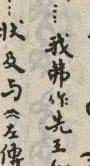 ⋯⋯我弗作先王
狀及与《左傳